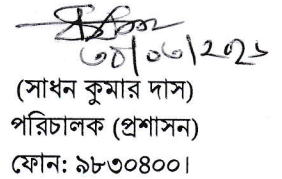 ৩০/০৬/২০২১
(সাধন কুমার দাস)
পরিচালক (প্রশাসন)
ফোন: ৯৮৩০৪০০।